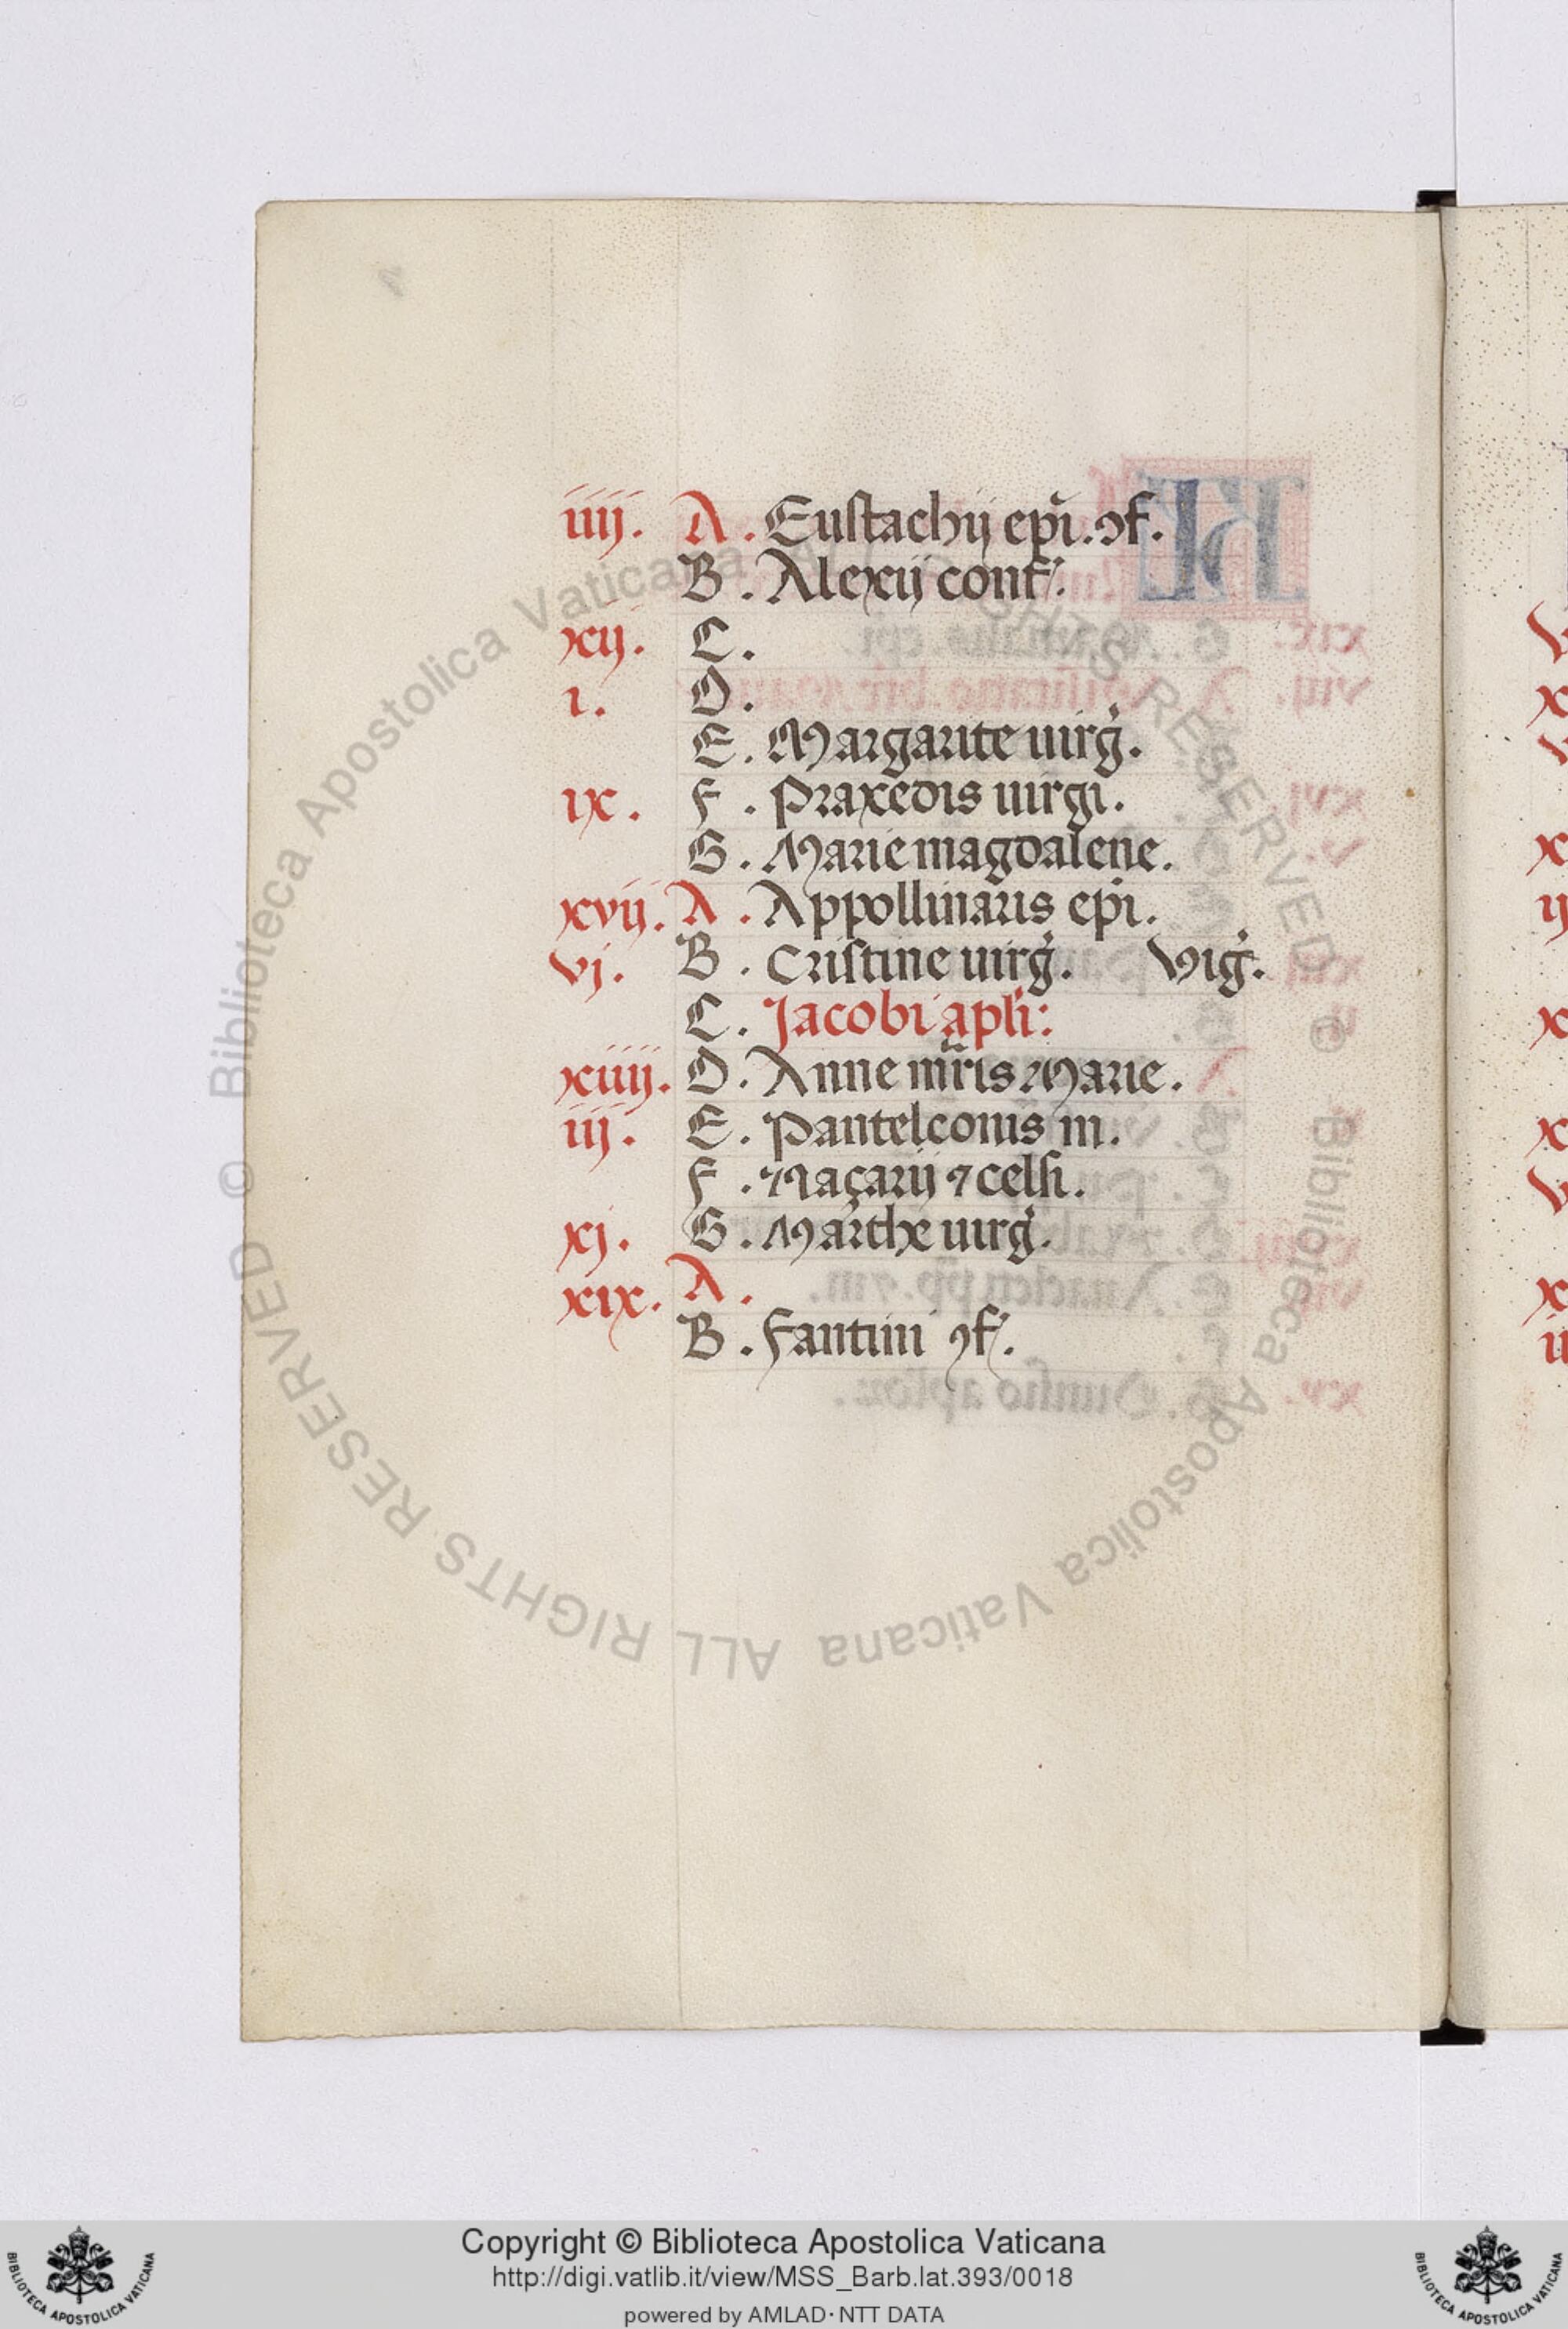 iiij. A. Eustachij ep̃i. ꝯf.
B. Alexij conf.
xij. C.
i. D.
E. Margarite uirg̃.
ix. F. Praxedis uirgi.
G. Marie magdalene.
xvij. A. Appollinaris ep̃i.
vj. B. Cristine uirg̃. Vig̃.
C. Jacobi apl̃i:
xiiij. D. Anne mr̃is Marie.
iij. E. Panteleonis m.
F. Naçarij ⁊ celsi.
xj. G. Marthe uirg̃.
xix. A.
B. Fantini ꝯf.
© Biblioteca Apostolica Vaticana ALL RIGHTS RESERVED © Biblioteca Apostolica Vaticana ALL RIGHTS RESERVED
Copyright © Biblioteca Apostolica Vaticana
http://digi.vatlib.it/view/MSS_Barb.lat.393/0018
powered by AMLAD·NTT DATA
BIBLIOTECA APOSTOLICA VATICANA
BIBLIOTECA APOSTOLICA VATICANA